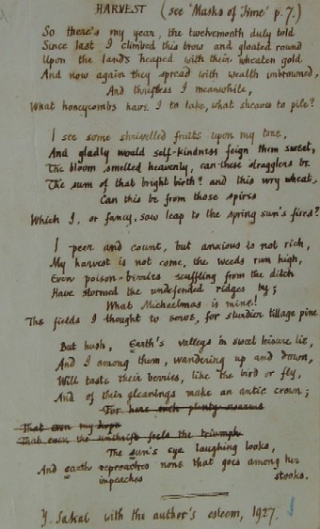 HARVEST (see 'Masks of Time' p. 7.)
So there's my year, the twelvemonth duly told
Since last I climbed this brow and gloated round
Upon the lands heaped with their wheaten gold,
And now again they spread with wealth unbemoaned,
And thriftless I meanwhile,
What honeycombs have I to take, what sheaves to pile?
I see some shrivelled fruits upon my tree,
And gladly would self-kindness feign them sweet;
The bloom smelled heavenly, can these stragglers be
The sum of that bright birth? and this wry wheat,
Can this be from those spires
Which I, or fancy, saw leap to the spring sun's fires?
I peer and count, but anxious is not rich,
My harvest is not come, the weeds run high;
Even poison-berries scuffling from the ditch
Have stormed the undefended ridges by;
What Michaelmas is mine!
The fields I thought to serve, for sturdier tillage pine.
But hush, Earth's valleys in sweet leisure lie,
And I among them, wandering up and down,
Will taste their berries, like the bird or fly,
And of their gleanings make an antic crown;
For here such plenty
That even my hope
That even the unthrift feels the triumph
The sun's eye laughing looks,
And earth reproaches none that goes among her
impeaches stooks.
Y. Saitō with the author's esteem, 1927.